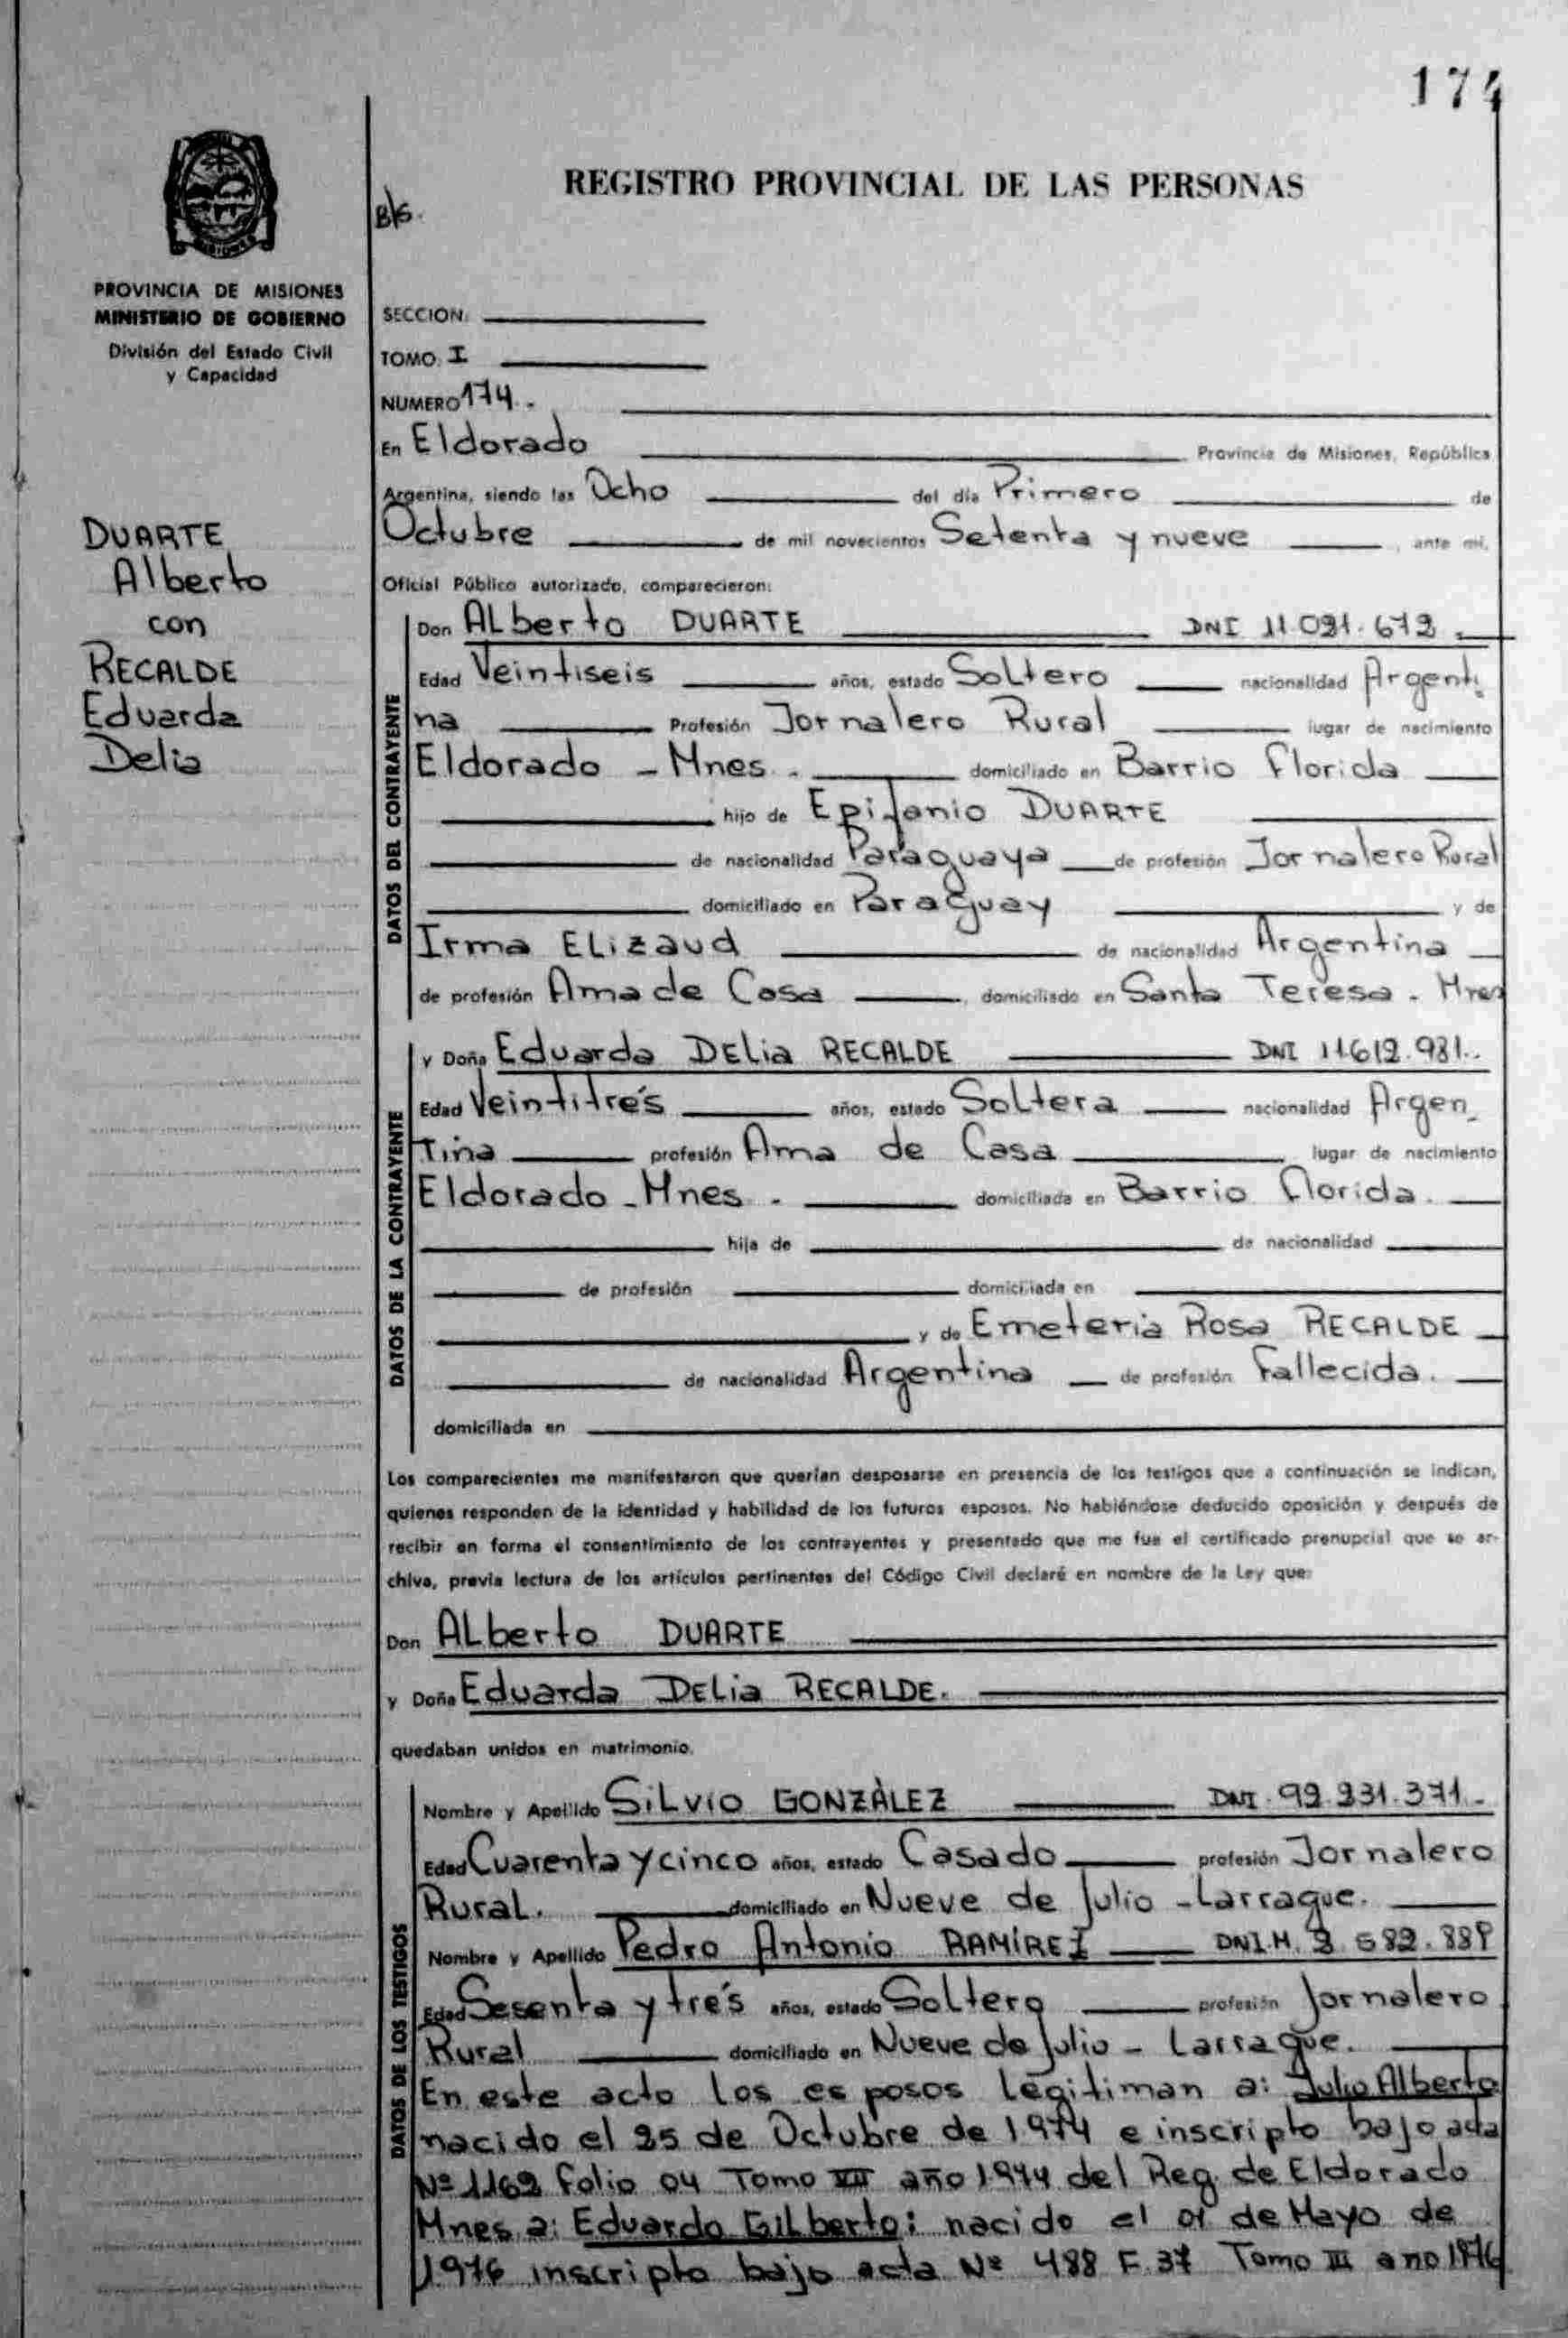 174
REGISTRO PROVINCIAL DE LAS PERSONAS
B/S.
MISIONES
PROVINCIA DE MISIONES
MINISTERIO DE GOBIERNO
División del Estado Civil
y Capacidad
DUARTE
Alberto
con
RECALDE
Eduarda
Delia
SECCION:
TOMO: I
NUMERO 174.-
En Eldorado Provincia de Misiones, República
Argentina, siendo las Ocho del día Primero de
Octubre de mil novecientos Setenta y nueve, ante mi,
Oficial Público autorizado, comparecieron:
DATOS DEL CONTRAYENTE
Don ALberto DUARTE DNI 11.091.672.
Edad Veintiseis años, estado SoLtero nacionalidad Argenti
na Profesión Jornalero Rural lugar de nacimiento
Eldorado - Mnes. domiciliado en Barrio Florida
hijo de Epifanio DUARTE
de nacionalidad Paraguaya de profesión Jornalero Rural
domiciliado en Paraguay y de
Irma ELizaud de nacionalidad Argentina
de profesión Ama de Casa, domiciliado en Santa Teresa - Mnes
DATOS DE LA CONTRAYENTE
y Doña Eduarda DELia RECALDE DNI 11.612.981.
Edad Veintitrés años, estado SoLtera nacionalidad Argen_
Tina profesión Ama de Casa lugar de nacimiento
Eldorado - Mnes. domiciliada en Barrio Florida.
hija de de nacionalidad
de profesión domiciliada en
y de Emeteria Rosa RECALDE
de nacionalidad Argentina de profesión Fallecida.
domiciliada en
Los comparecientes me manifestaron que querían desposarse en presencia de los testigos que a continuación se indican,
quienes responden de la identidad y habilidad de los futuros esposos. No habiéndose deducido oposición y después de
recibir en forma el consentimiento de los contrayentes y presentado que me fue el certificado prenupcial que se ar-
chiva, previa lectura de los artículos pertinentes del Código Civil declaré en nombre de la Ley que:
Don ALberto DUARTE
y Doña Eduarda DELia RECALDE.
quedaban unidos en matrimonio.
DATOS DE LOS TESTIGOS
Nombre y Apellido SiLvio GONZÁLEZ DNI. 92.231.371.-
Edad Cuarenta y cinco años, estado Casado profesión Jornalero
Rural. domiciliado en Nueve de Julio - Larrague.
Nombre y Apellido Pedro Antonio RAMÍREZ DNI.M.
Edad Sesenta y trés años, estado SoLtero profesión Jornalero
Rural domiciliado en Nueve de Julio - Larrague.
En este acto los esposos Legitiman a: Julio Alberto
nacido el 25 de Octubre de 1974 e inscripto bajo acta
Nº 1169 Folio 04 Tomo VII año 1974 del Reg. de Eldorado
Mnes a: Eduardo GiLberto; nacido el 01 de Mayo de
1976 inscripto bajo acta Nº 488 F. 37 Tomo III ano 1976